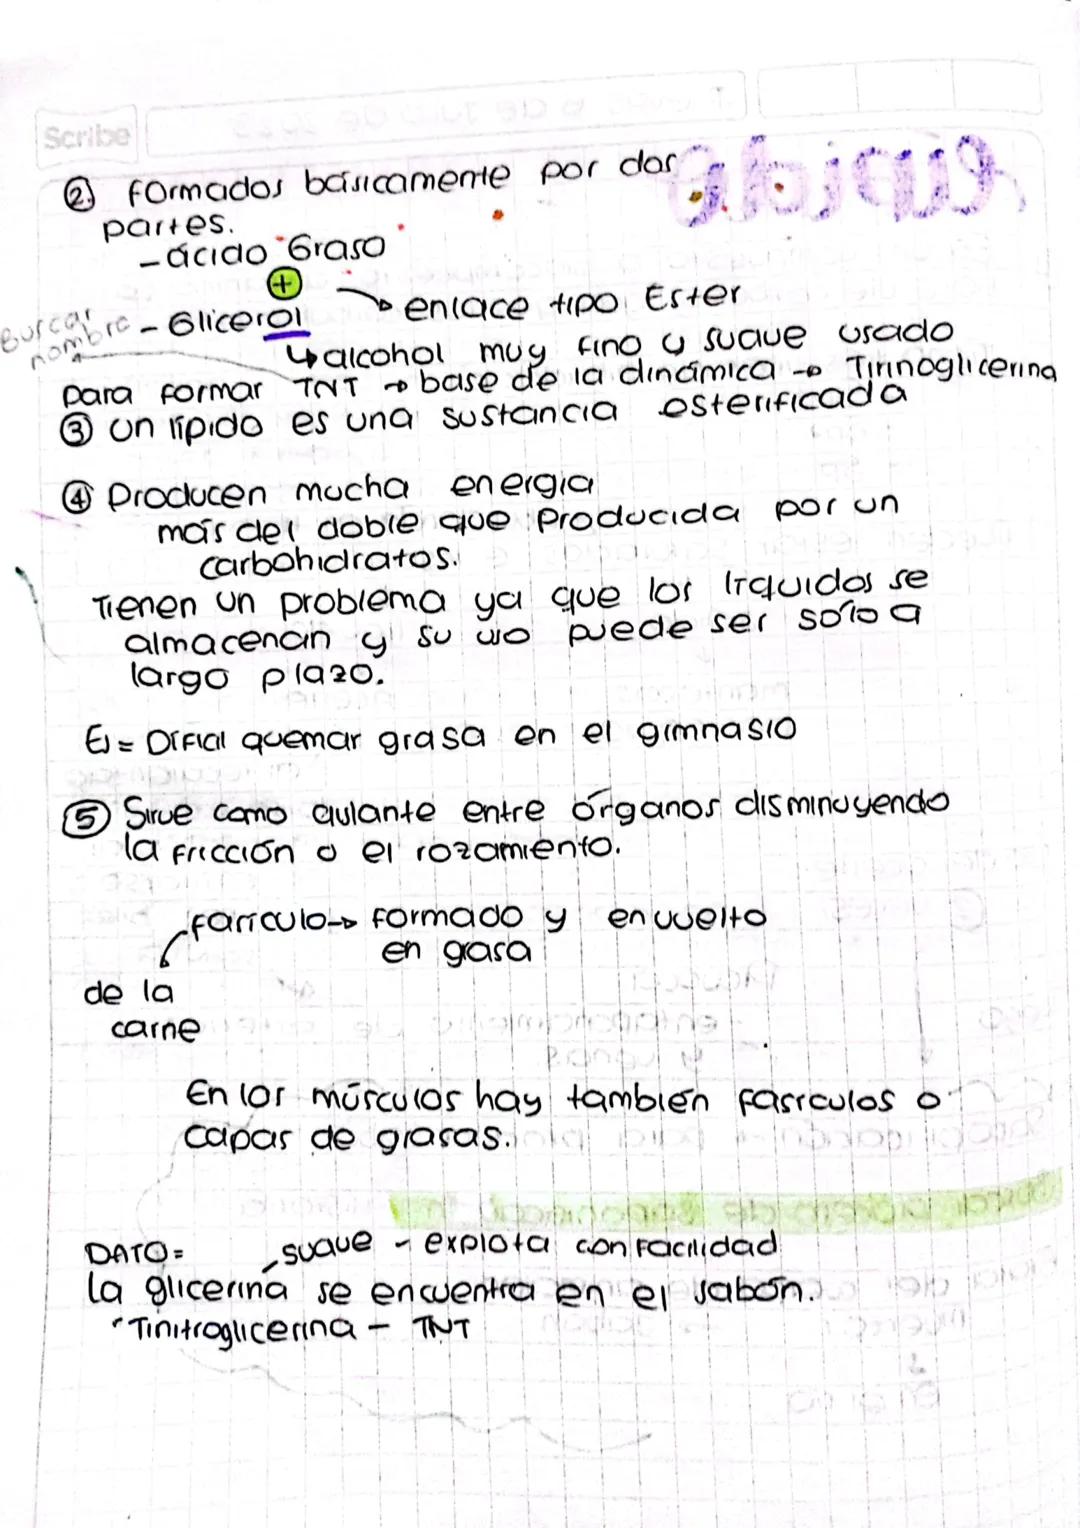 Scribe
② formados básicamente por dos
partes.
- ácido Graso
+ → enlace tipo Ester
Buscar nombre - Glicerol
↳ alcohol muy fino y suave usado
para formar TNT → base de la dinámica → Tirinoglicerina
③ Un lípido es una sustancia esterificada
④ Producen mucha energía
más del doble que producida por un
carbohidratos.
Tienen un problema ya que los líquidos se
almacenan y su uso puede ser sólo a
largo plazo.
Ej = Difícil quemar grasa en el gimnasio
⑤ Sirve como aulante entre órganos disminuyendo
la fricción o el rozamiento.
farículo → formado y envuelto
en grasa
de la
carne
En los músculos hay también fasículos o
capas de grasas.
DATO = suave - explota con facilidad
La glicerina se encuentra en el jabón.
Tinitroglicerina - TNT